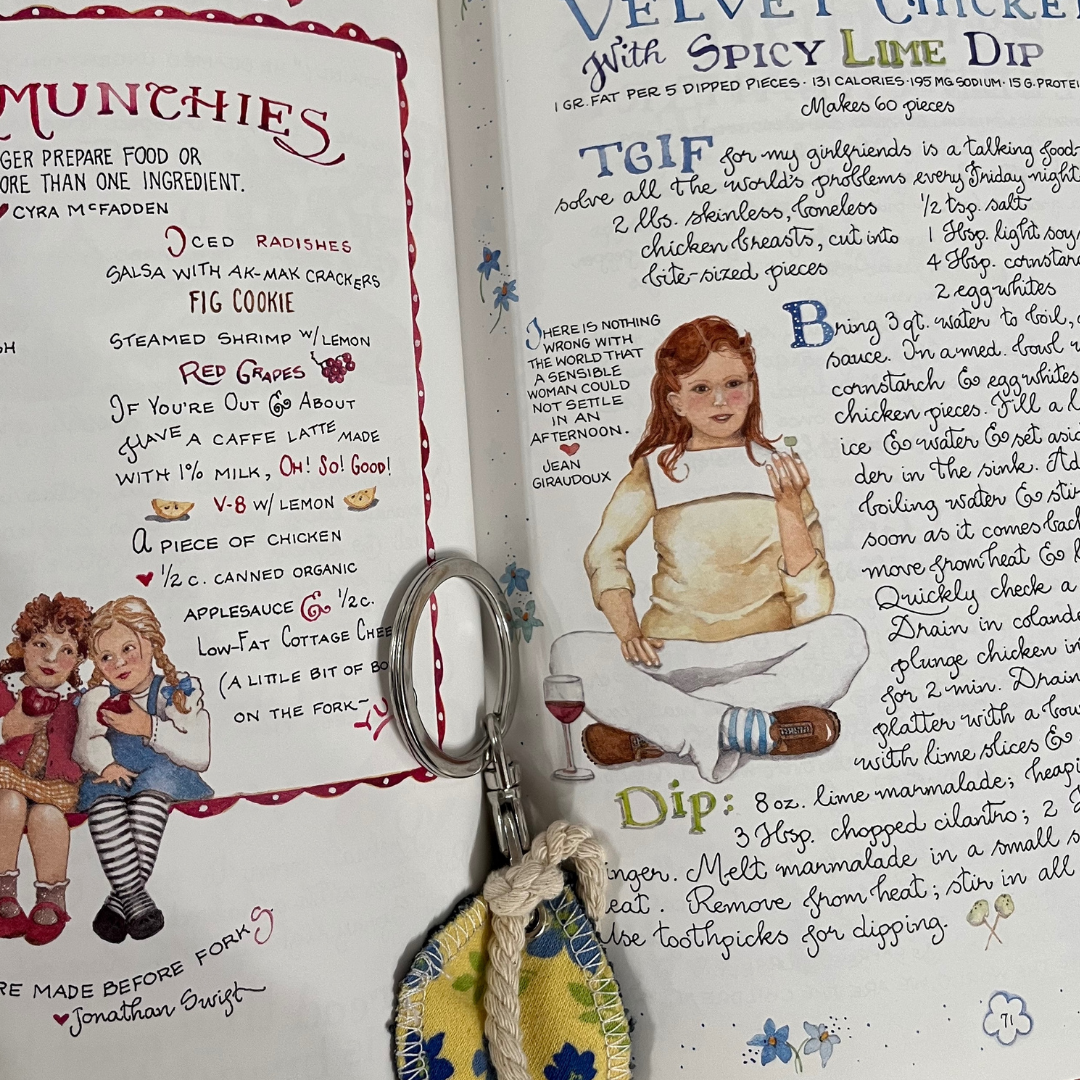 MUNCHIES
GER PREPARE FOOD OR
ORE THAN ONE INGREDIENT.
CYRA McFADDEN
ICED RADISHES
SALSA WITH AK-MAK CRACKERS
FIG COOKIE
STEAMED SHRIMP W/LEMON
RED GRAPES
IF YOU'RE OUT & ABOUT
HAVE A CAFFE LATTE MADE
WITH 1% MILK, OH! SO! GOOD!
V-8 W/ LEMON
A PIECE OF CHICKEN
1/2 C. CANNED ORGANIC
APPLESAUCE & 1/2 C.
LOW-FAT COTTAGE CHEE
(A LITTLE BIT OF BO
ON THE FORK~
YU
RE MADE BEFORE FORKS
Jonathan Swift
VELVET CHICKE
With SPICY LIME DIP
1 GR. FAT PER 5 DIPPED PIECES · 131 CALORIES · 195 MG SODIUM · 15 G. PROTEI
Makes 60 pieces
TGIF for my girlfriends is a talking food-
solve all the world's problems every Friday night
2 lbs. skinless, boneless
chicken breasts, cut into
bite-sized pieces
1/2 tsp. salt
1 Tbsp. light soy
4 Tbsp. cornstar
2 egg whites
THERE IS NOTHING
WRONG WITH
THE WORLD THAT
A SENSIBLE
WOMAN COULD
NOT SETTLE
IN AN
AFTERNOON.
JEAN
GIRAUDOUX
Bring 3 qt. water to boil,
sauce. In a med. bowl
cornstarch & egg whites
chicken pieces. Fill a l
ice & water & set asid
der in the sink. Ad
boiling water & stir
soon as it comes back
move from heat & l
Quickly check a
Drain in coland
plunge chicken in
for 2 min. Drain
platter with a bow
with lime slices &
Dip: 8 oz. lime marmalade; heapi
3 Tbsp. chopped cilantro; 2
inger. Melt marmalade in a small s
eat. Remove from heat; stir in all
Use toothpicks for dipping.
71